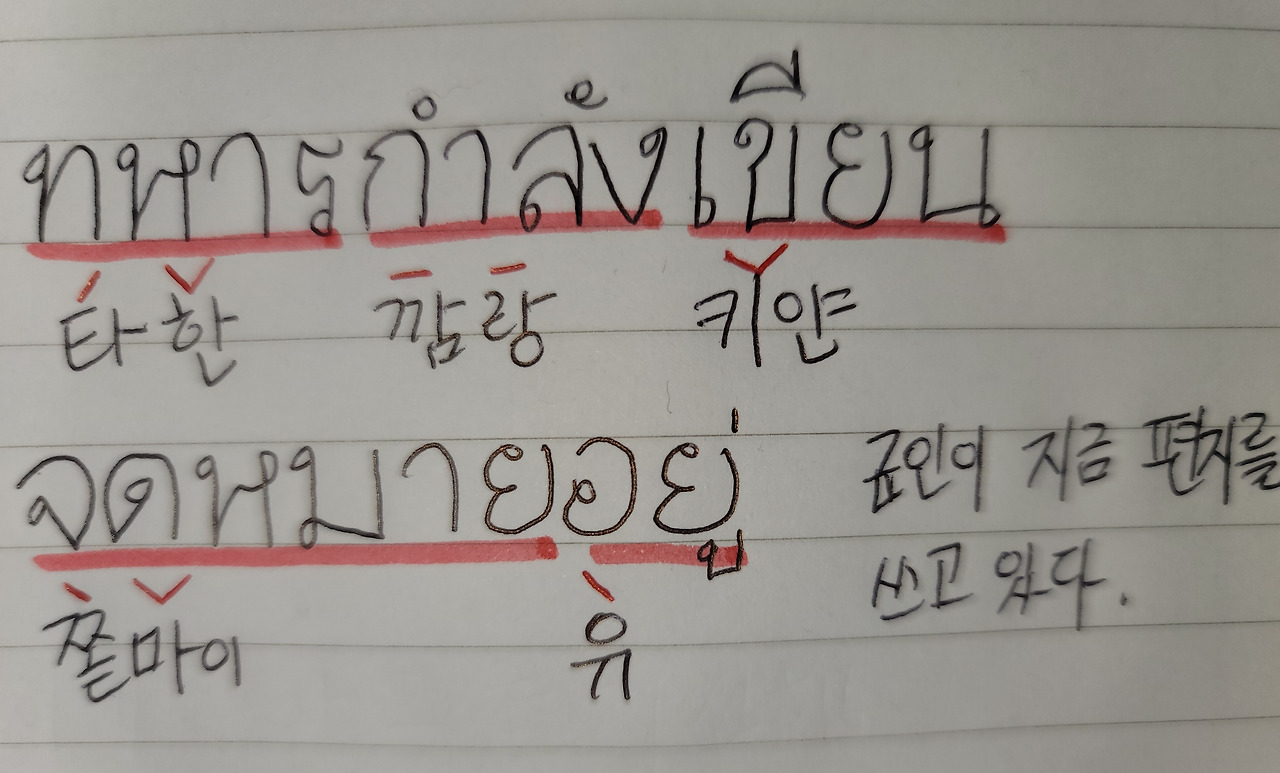 ทหารกำลังเขียน
타한 깜랑 키얀
จดหมายอยู่
쫃마이 유
군인이 지금 편지를
쓰고 있다.